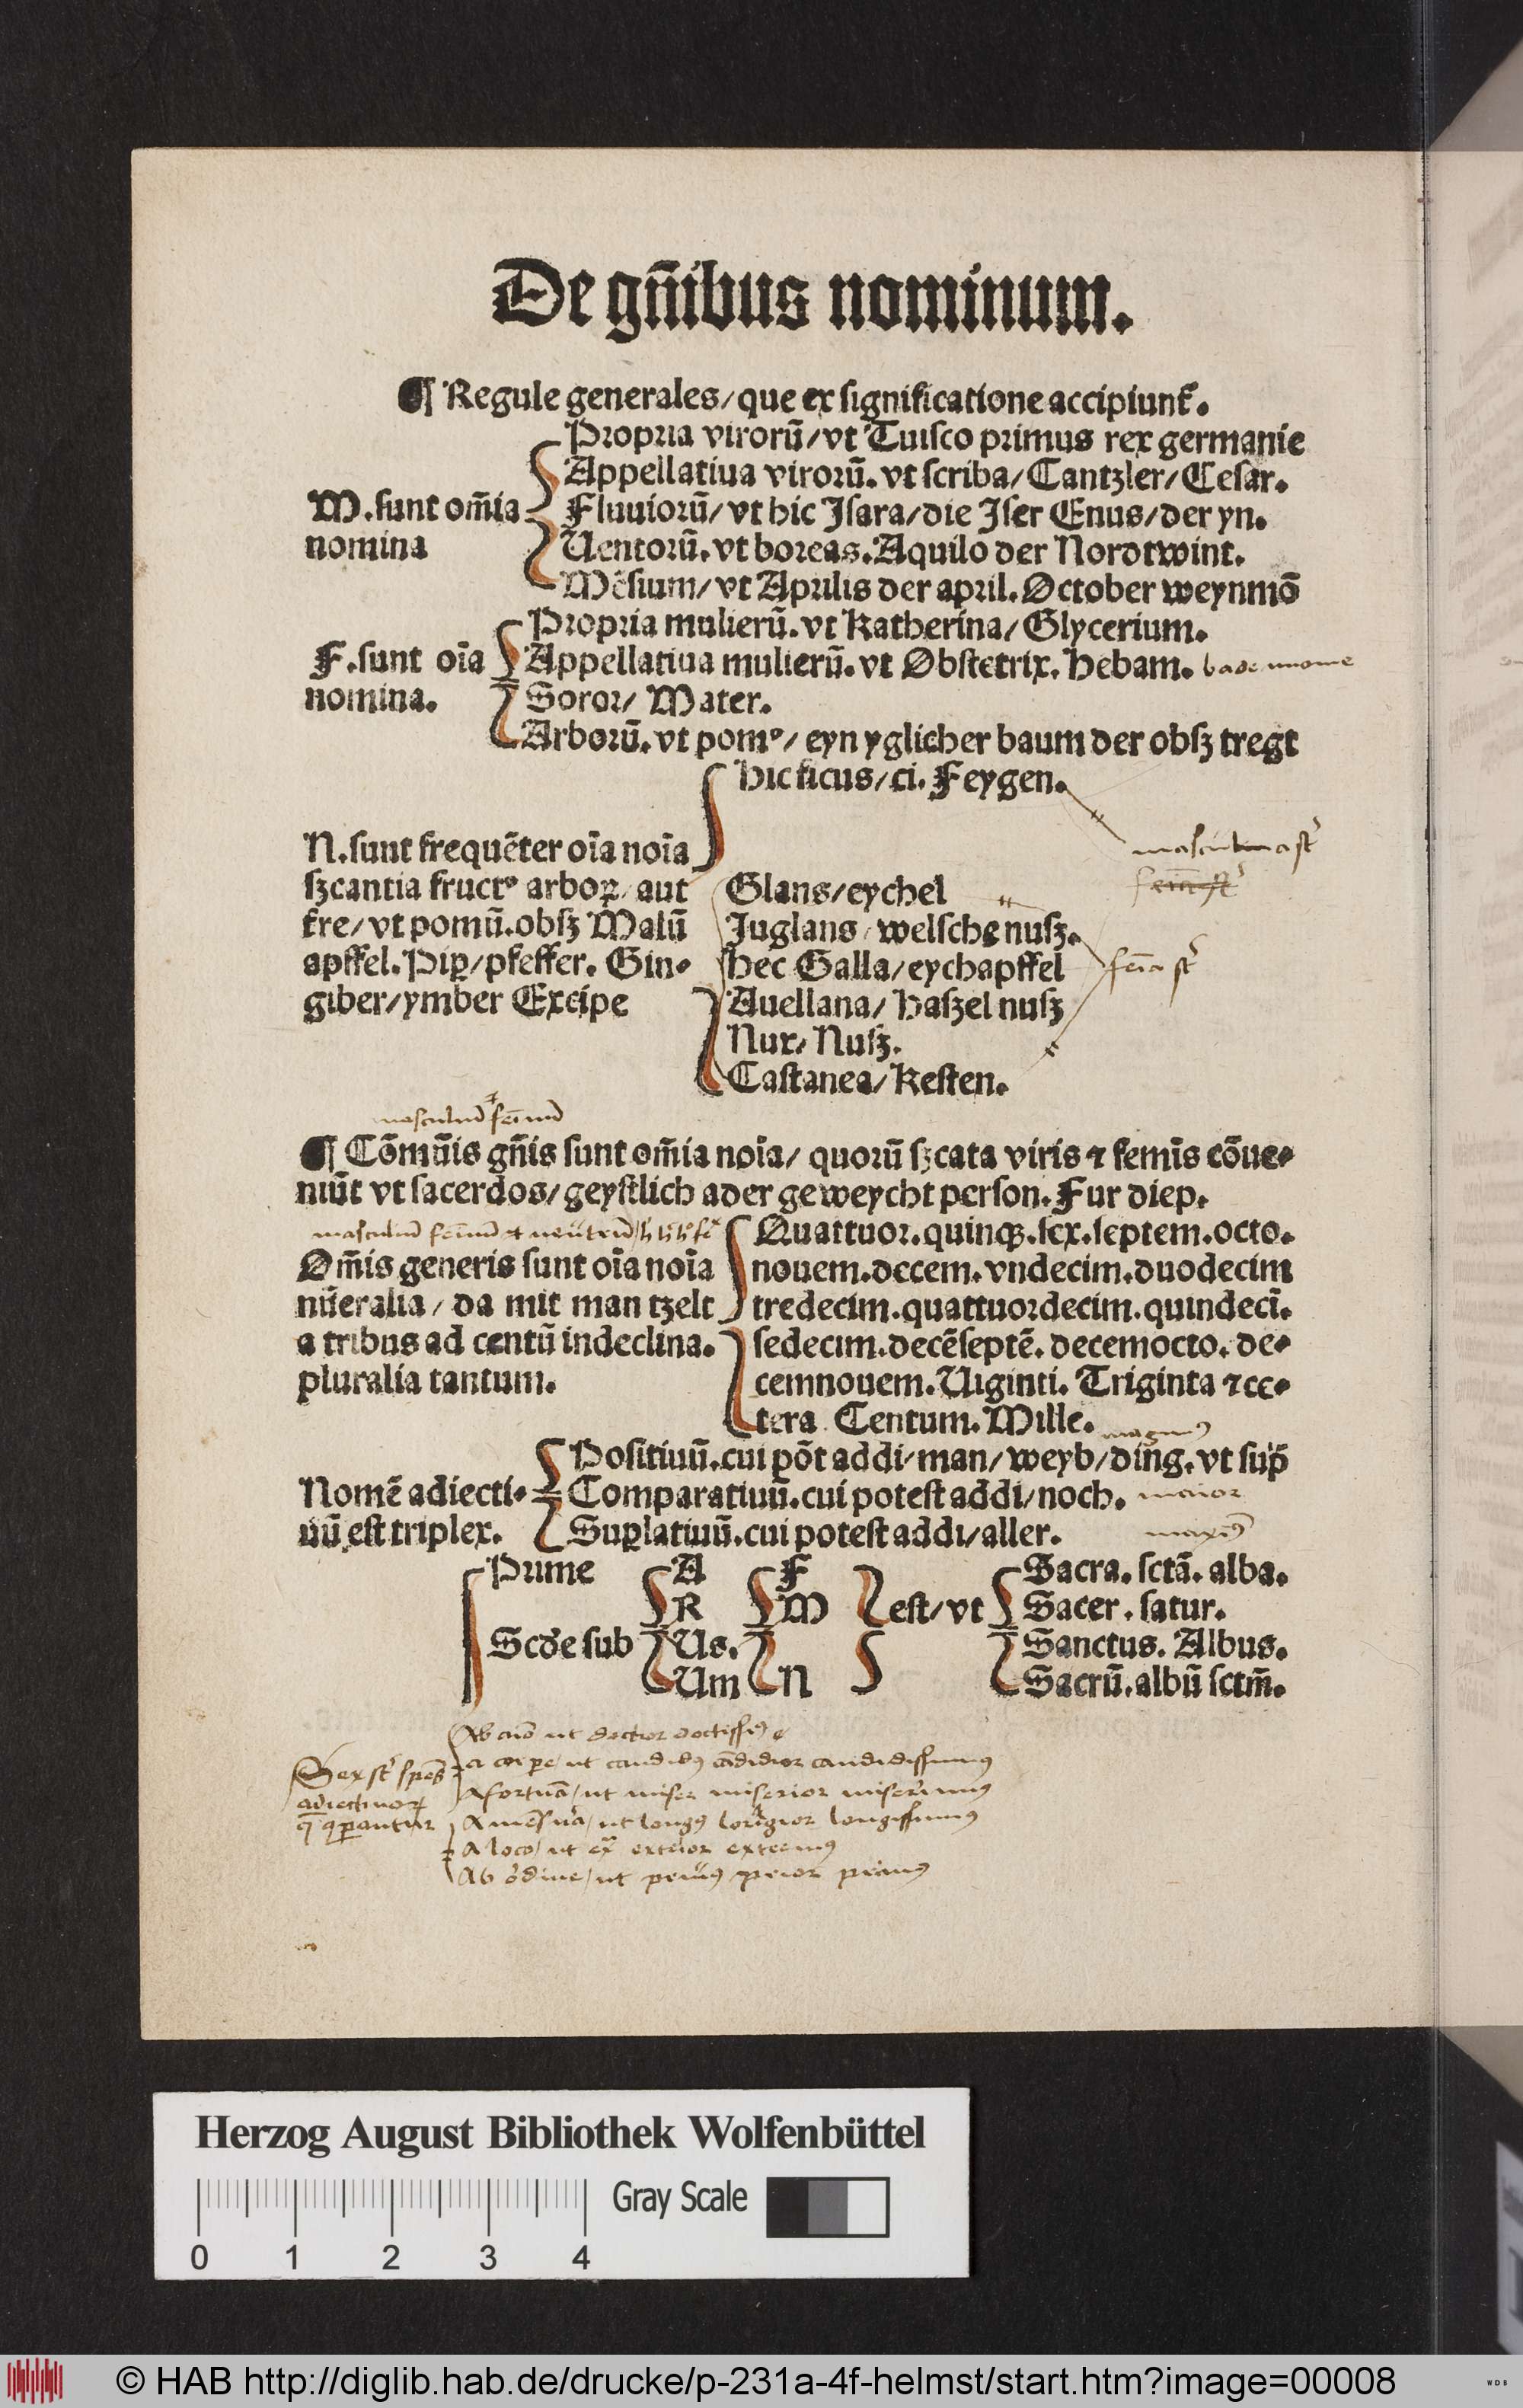 De gn̄ibus nominum.
¶ Regule generales/que ex ſignificatione accipiunt᷑.
M.ſunt om̄ia
nomina
Propria virorū/vt Tuiſco primus rex germanie
Appellatiua virorū.vt ſcriba/Cantzler/Ceſar.
Fluuiorū/vt hic Iſara/die Iſer Enus/der yn.
Uentorū.vt boreas.Aquilo der Nordtwint.
Mēſium/vt Aprilis der april.October weynmō
F.ſunt oīa
nomina.
Propria mulierū.vt Katherina/Glycerium.
Appellatiua mulierū.vt Obſtetrix.Hebam.
Soror/Mater.
Arborū.vt pomꝰ/eyn yglicher baum der obſz tregt
N.ſunt frequēter oīa noīa
ſzcantia fructꝰ arboꝝ/aut
fre/vt pomū.obſz Malū
apffel.Piꝑ/pfeffer. Gin⸗
giber/ymber Excipe
Hic ficus/ci.Feygen.
Glans/eychel
Juglans/welſche nuſz.
Hec Galla/eychapffel
Auellana/Haſzel nuſz
Nux/Nuſz.
Caſtanea/Keſten.
masculinaſt
feīa ſt
masculinū ⁊ feīnū
¶ Cōmūis gn̄is ſunt om̄ia noīa/quorū ſzcata viris ⁊ femīs cōue⸗
niūt vt ſacerdos/geyſtlich ader geweycht perſon.Fur diep.
masculinū feīnū ⁊ neutrū
Om̄is generis ſunt oīa noīa
nūeralia/da mit man tzelt
a tribus ad centū indeclina.
pluralia tantum.
Quattuor.quinqꝫ.ſex.ſeptem.octo.
nouem.decem.vndecim.duodecim
tredecim.quattuordecim.quindecī.
ſedecim.decēſeptē.decemocto.de⸗
cemnouem.Uiginti.Triginta ⁊ce⸗
tera Centum.Mille.
Nomē adiecti⸗
uū eſt triplex.
Poſitiuū.cui pōt addi/man/weyb/ding.vt ſup̄
Comparatiuū.cui poteſt addi/noch.
Suꝑlatiuū.cui poteſt addi/aller.
magnus
maior
maxīꝰ
Prime
Scd̄e ſub
A
R
Us.
Um
F
M
N
eſt/vt
Sacra.ſctā.alba.
Sacer.ſatur.
Sanctus.Albus.
Sacrū.albū ſctm̄.
Sex ſt ſpēs
adiectivoꝝ
Ab aīo ut doctior doctiſſīꝰ
a corꝑe/ut candidꝰ cādidior candidiſſimꝰ
A fortūa/ut miser miserior miserimꝰ
A mēsura/ut longꝰ longior longiſſimꝰ
A loco/ut exterior extremꝰ
Ab ordine/ut prior primꝰ
Herzog August Bibliothek Wolfenbüttel
0 1 2 3 4
Gray Scale
© HAB http://diglib.hab.de/drucke/p-231a-4f-helmst/start.htm?image=00008
WDB